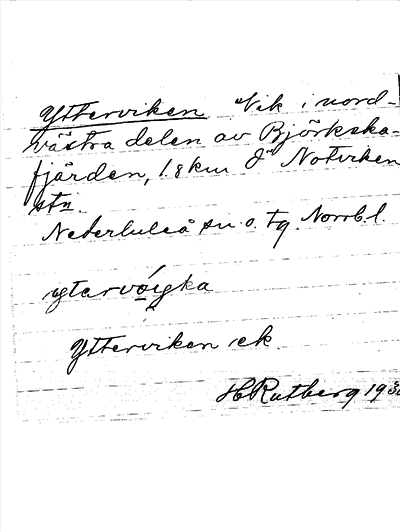 Ytterviken Vik i nord-
västra delen av Björkska-
fjärden, 1.8 km Ö Notviken
stn.
Nederluleå sn. o. tg. Norrb. l.
Ytterviken ek.
H Rutberg 193